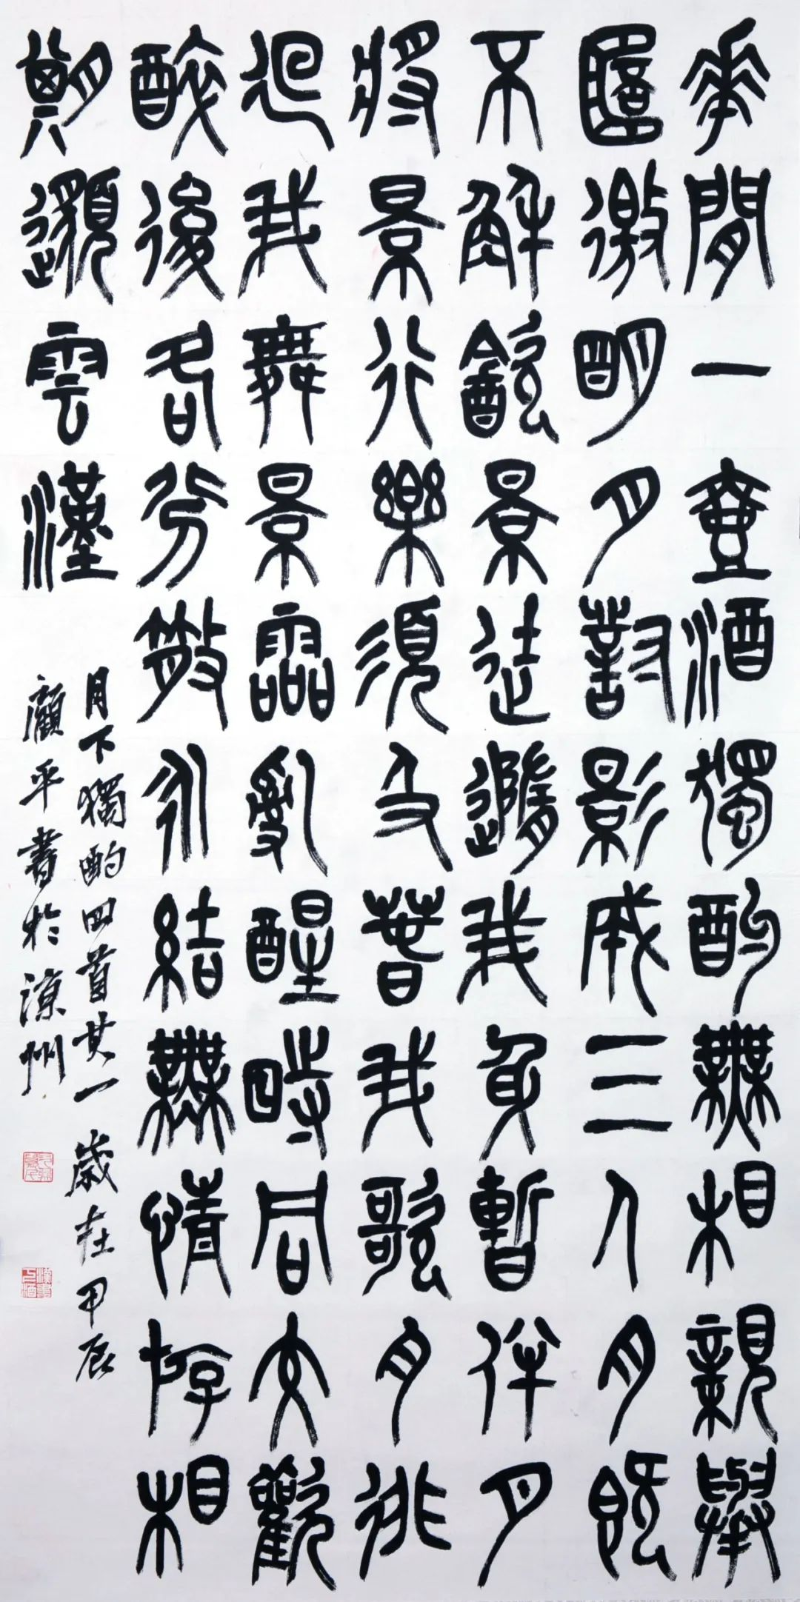 華間一壺酒獨酌無相親舉
杯邀明月對影成三人月既
不解飲景徒隨我身暫伴月
將景行樂須及春我歌月徘
徊我舞景零亂醒時同交歡
醉後各分散永結無情遊相
期邈雲漢
月下獨酌四首其一 歲在甲辰
顧平書於涼州